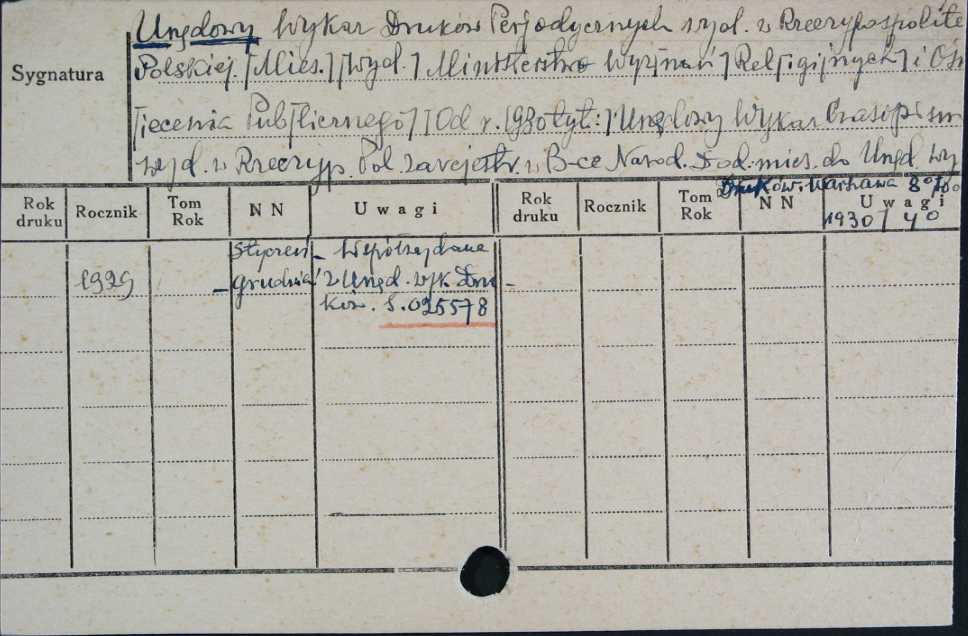 Urzędowy Wykaz Druków Perjodycznych wyd. w Rzeczypospolite
Sygnatura
Polskiej. [Mies.] [Wyd.] Ministerstwo Wyz[nań] Rel[igijnych] i Oś
[iecenia Publ[icznego] [Od r. 1930 tyt:] Urzędowy Wykaz Czasopism
wyd. w Rzeczyp. Pol. zarejestr. w B-ce Narod. Dod. mies. do Urzęd. Wy
Druków. Warszawa 8°
Rok druku Rocznik Tom Rok NN Uwagi Rok druku Rocznik Tom Rok NN Uwagi
1930 / 4°
styczeń - Współwydane
1929 - grudzień z Urzęd. wyk. Dru-
ków. S.025578